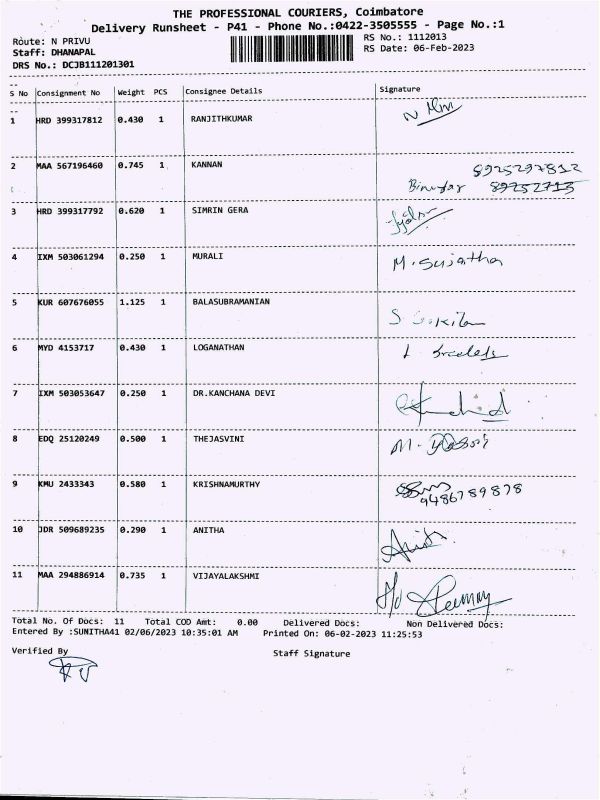 THE PROFESSIONAL COURIERS, Coimbatore
Delivery Runsheet - P41 - Phone No.:0422-3505555 - Page No.:1
Route: N PRIVU RS No.: 1112013
Staff: DHANAPAL RS Date: 06-Feb-2023
DRS No.: DCJB111201301
S No Consignment No Weight PCS Consignee Details Signature
1 HRD 399317812 0.430 1 RANJITHKUMAR
2 MAA 567196460 0.745 1 KANNAN 8925297812
3 HRD 399317792 0.620 1 SIMRIN GERA
4 IXM 503061294 0.250 1 MURALI M. Sujatha
5 KUR 607676055 1.125 1 BALASUBRAMANIAN
6 MYD 4153717 0.430 1 LOGANATHAN
7 IXM 503053647 0.250 1 DR.KANCHANA DEVI
8 EDQ 25120249 0.500 1 THEJASVINI
9 KMU 2433343 0.580 1 KRISHNAMURTHY 9486789878
10 JDR 509689235 0.290 1 ANITHA
11 MAA 294886914 0.735 1 VIJAYALAKSHMI
Total No. Of Docs: 11 Total COD Amt: 0.00 Delivered Docs: Non Delivered Docs:
Entered By :SUNITHA41 02/06/2023 10:35:01 AM Printed On: 06-02-2023 11:25:53
Verified By Staff Signature